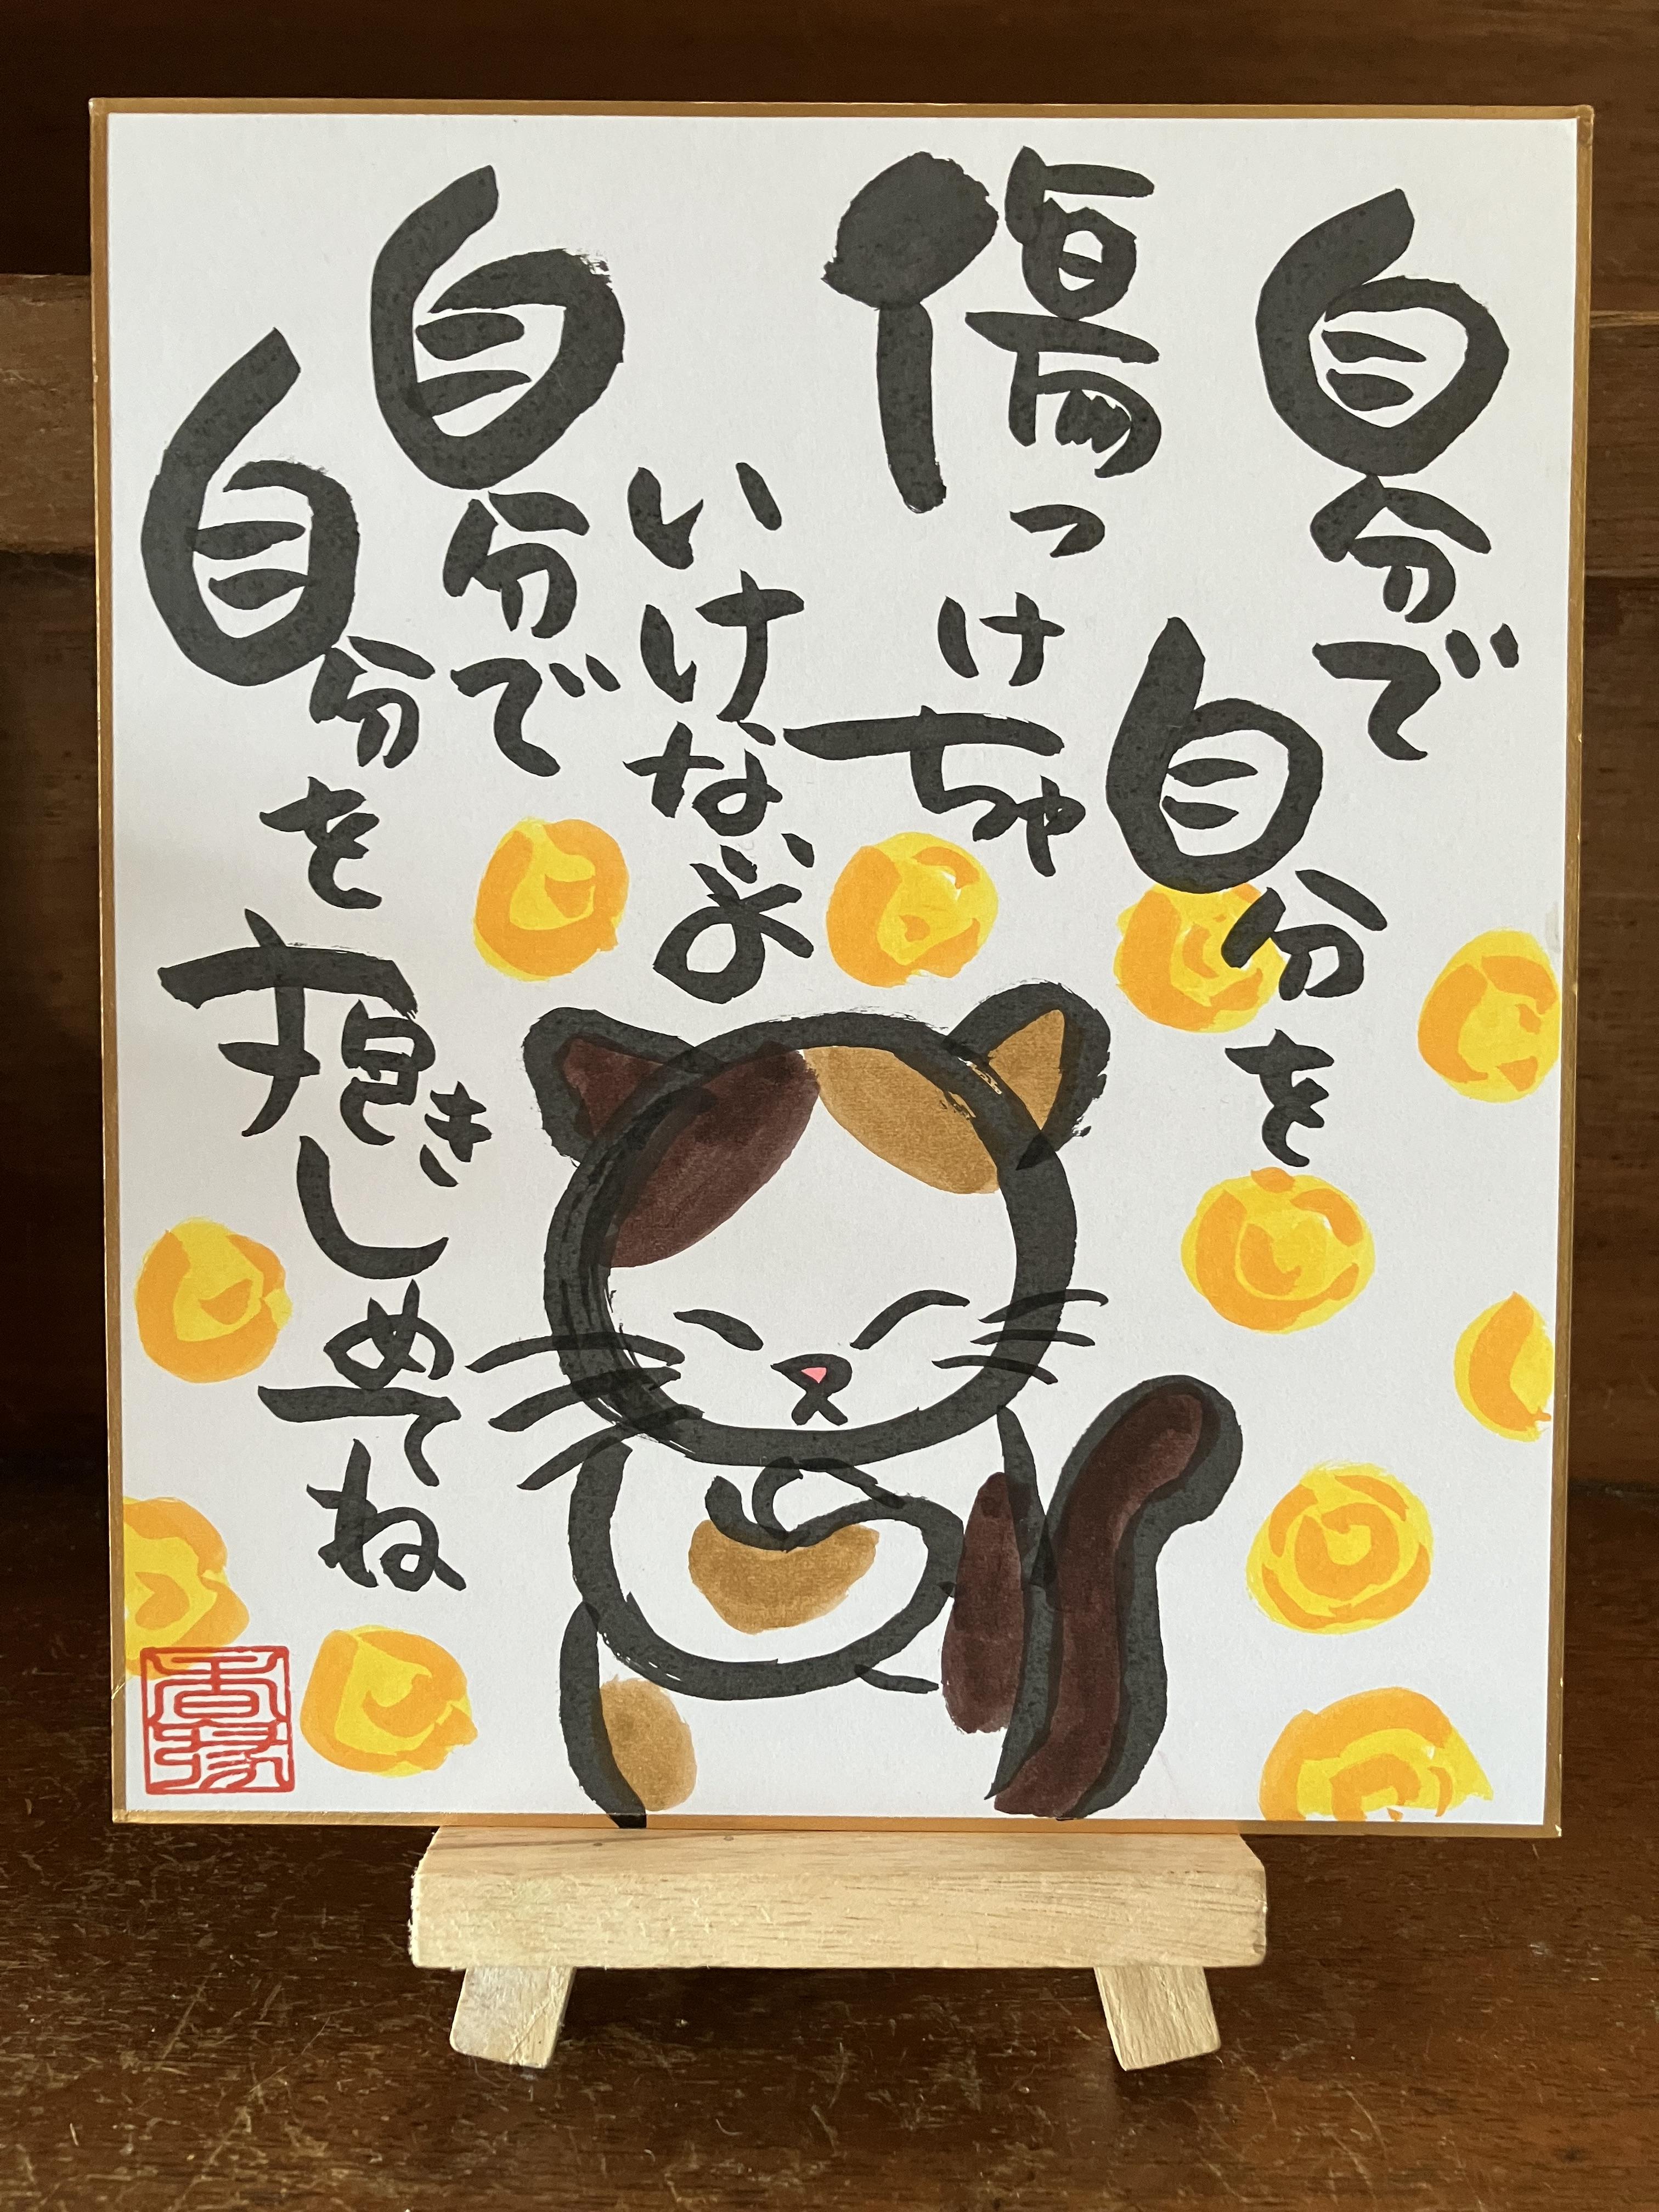 自分で
自分を
傷つけちゃ
いけないよ
自分で
自分を抱きしめてね